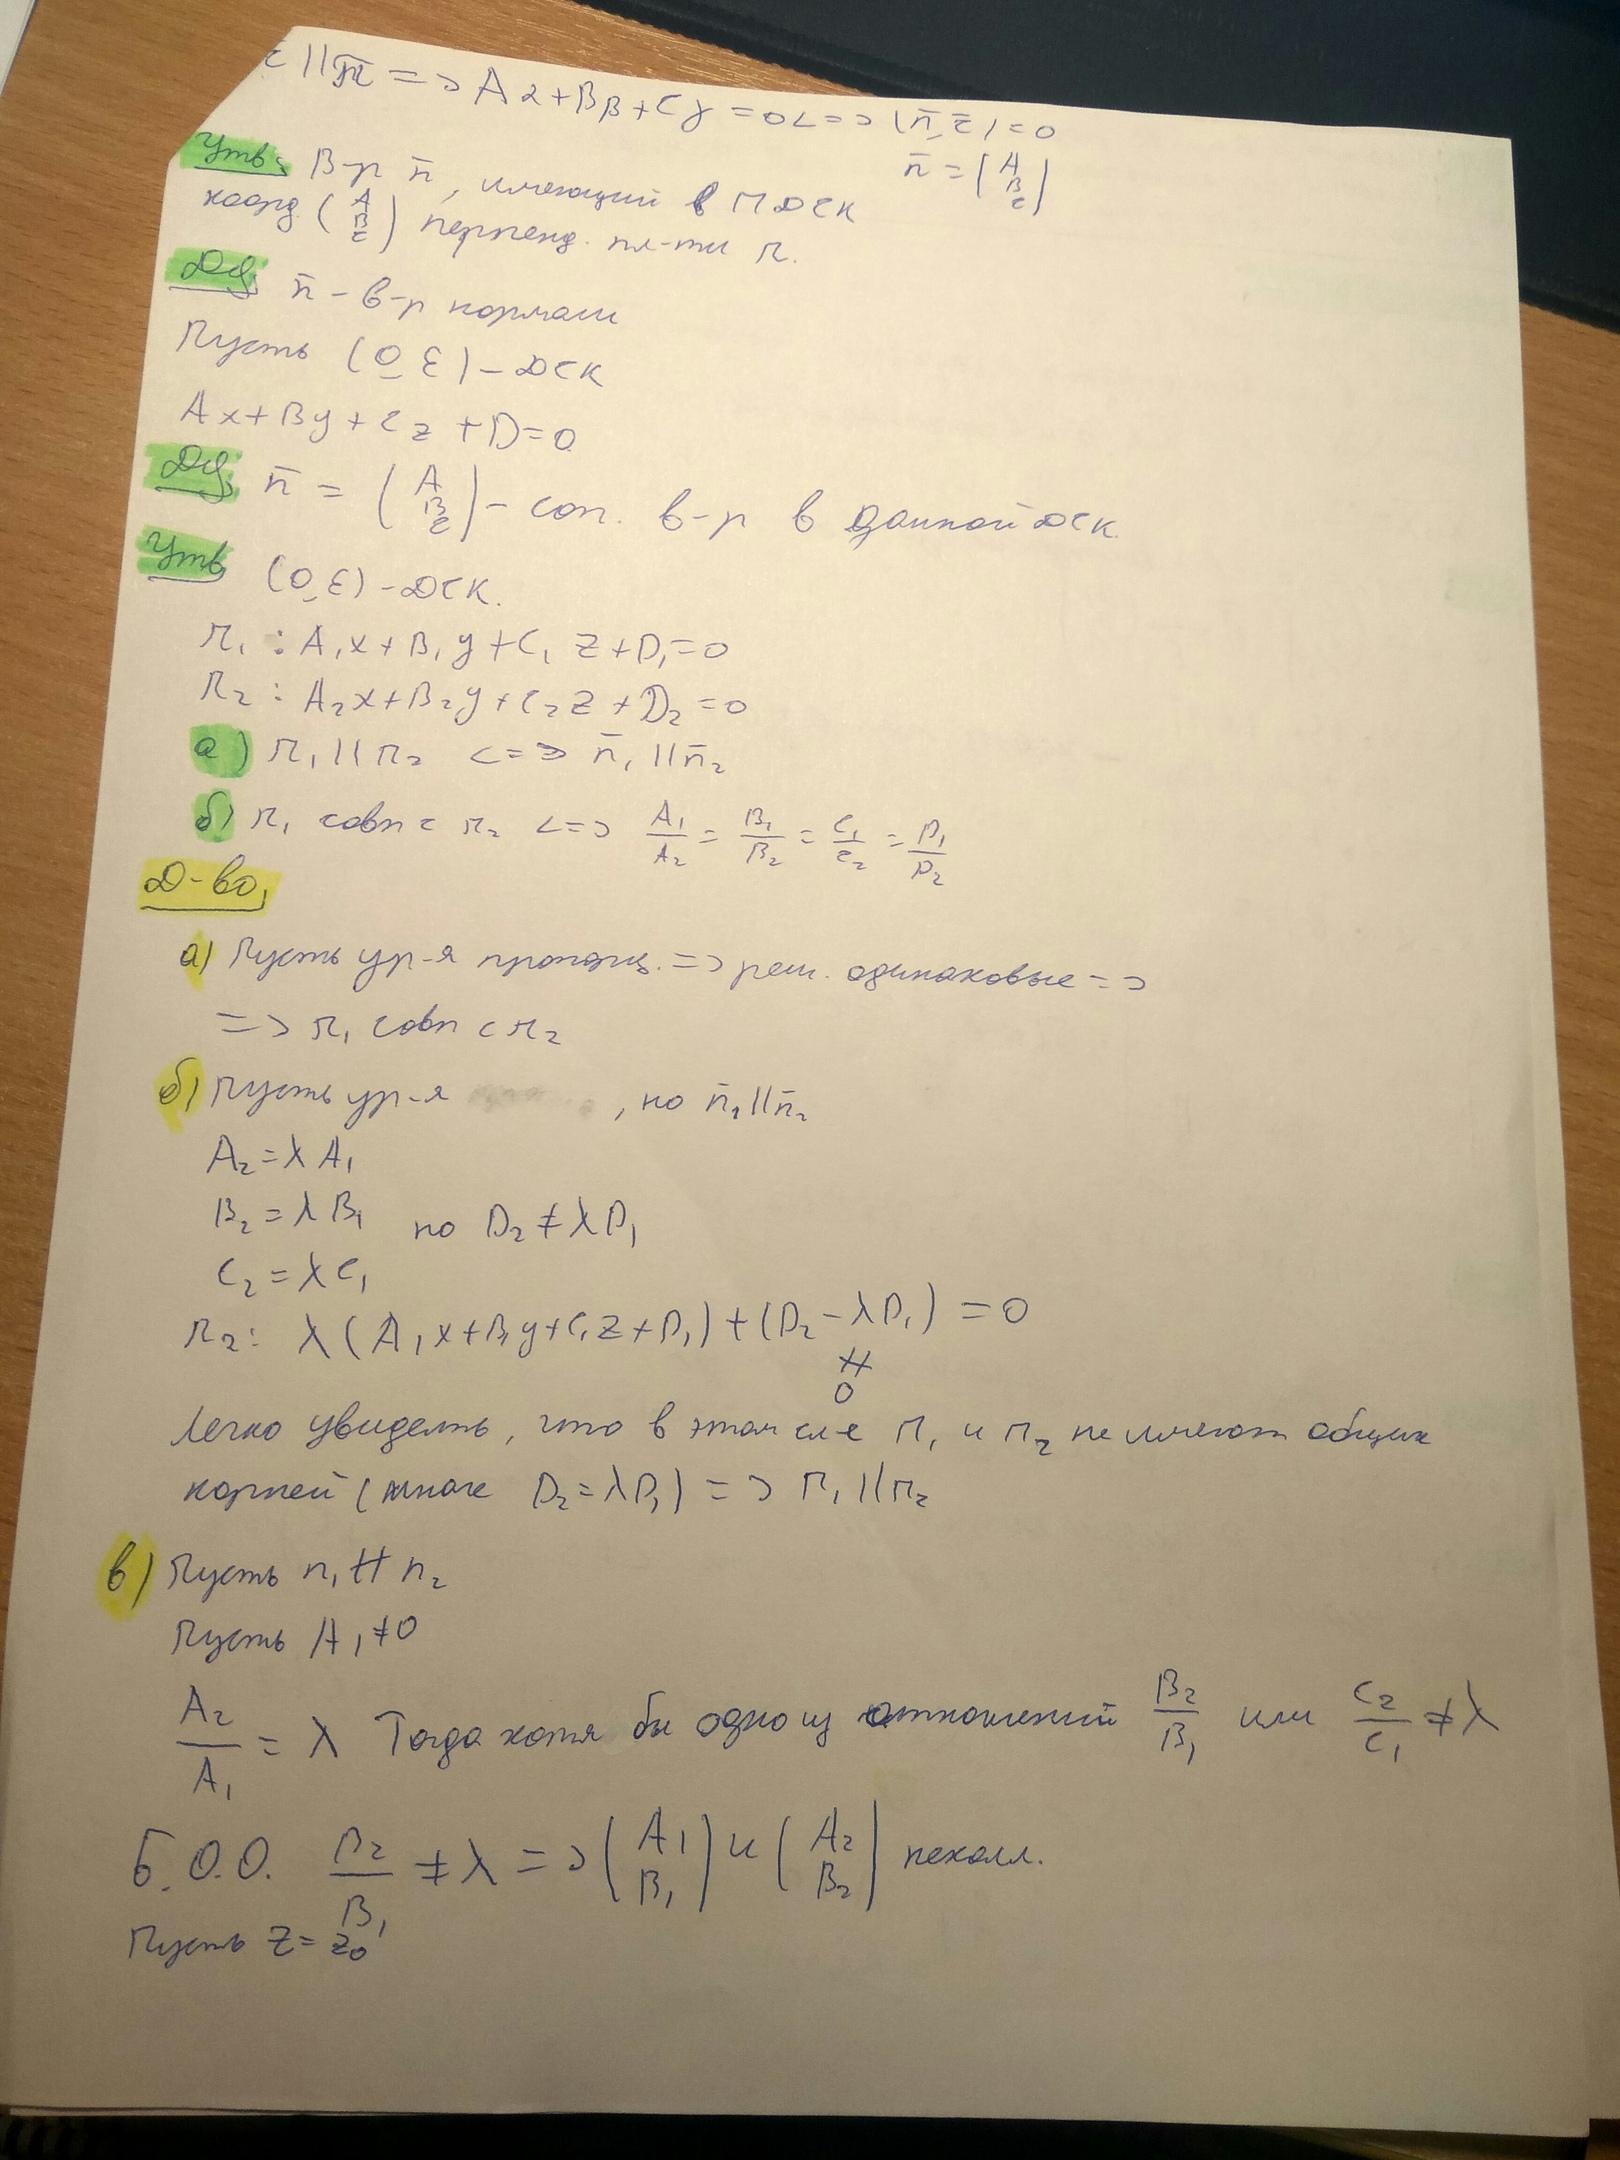 c̄ || π => Aα + Bβ + Cγ = 0 <=> (n̄, c̄) = 0
n̄ = (A B C)
Утв. В-р n̄, имеющий в ПДСК
коорд. (A B C) перпенд. пл-ти π.
Дф. n̄ - в-р нормали
Пусть (O, ε) - ДСК
Ax + By + Cz + D = 0
Дф. n̄ = (A B C) - соп. в-р в данной ДСК.
Утв (O, ε) - ДСК.
π₁ : A₁x + B₁y + C₁z + D₁ = 0
π₂ : A₂x + B₂y + C₂z + D₂ = 0
а) π₁ || π₂ <=> n̄₁ || n̄₂
б) π₁ совп с π₂ <=> A₁/A₂ = B₁/B₂ = C₁/C₂ = D₁/D₂
Д-во,
а) Пусть ур-я пропорц. => реш. одинаковые =>
=> π₁ совп с π₂
б) Пусть ур-я , но n̄₁ || n̄₂
A₂ = λA₁
B₂ = λB₁ но D₂ ≠ λD₁
C₂ = λC₁
π₂: λ(A₁x + B₁y + C₁z + D₁) + (D₂ - λD₁) = 0
≠
0
Легко увидеть, что в этом сл-е π₁ и π₂ не имеют общих
корней (иначе D₂ = λD₁) => π₁ || π₂
в) Пусть n₁ ∦ n₂
Пусть A₁ ≠ 0
A₂/A₁ = λ Тогда хотя бы одно из отношений B₂/B₁ или C₂/C₁ ≠ λ
Б.О.О. B₂/B₁ ≠ λ => (A₁ B₁) и (A₂ B₂) неколл.
Пусть z = z₀